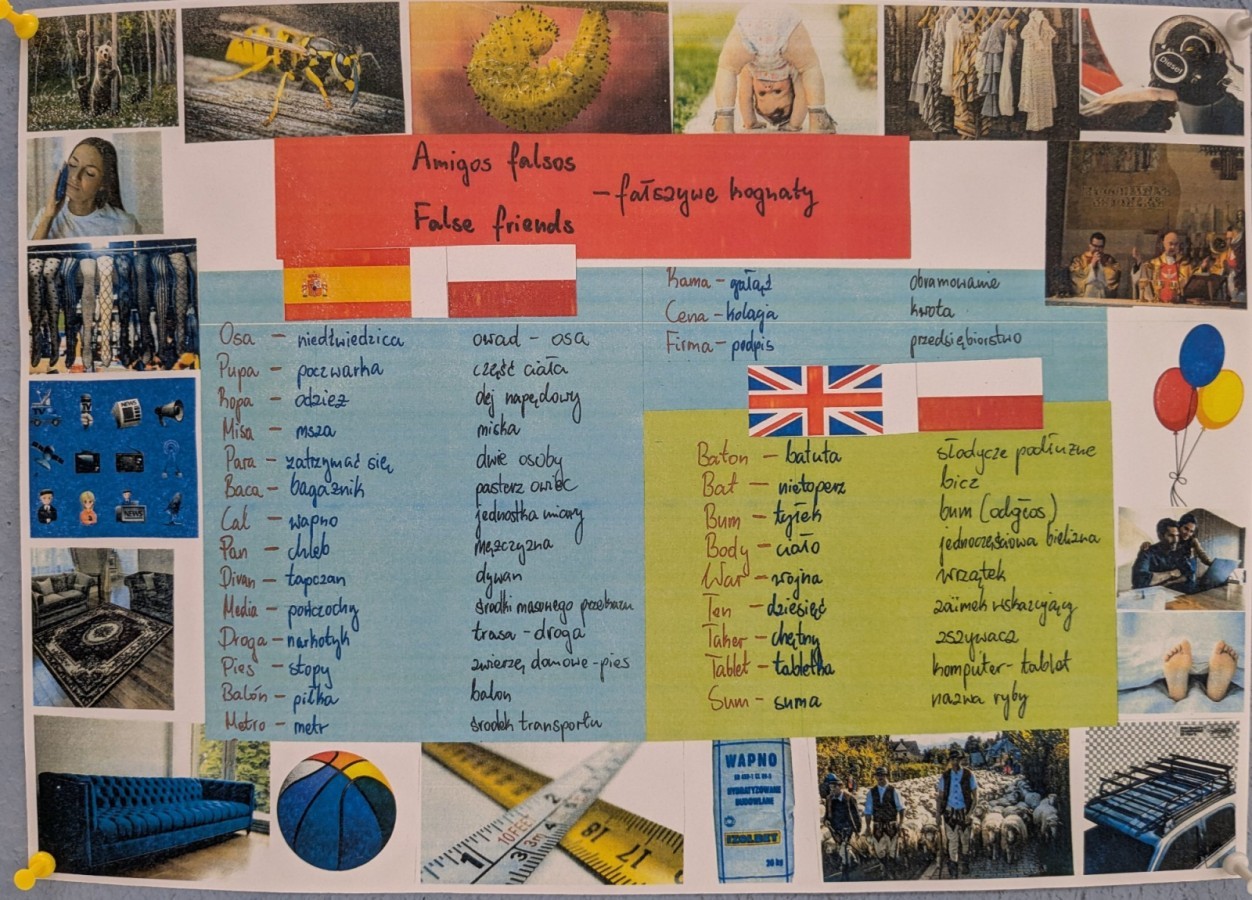 Amigos falsos
– fałszywe kognaty
False friends
Osa – niedźwiedzica owad - osa
Pupa – poczwarka część ciała
Ropa – odzież olej napędowy
Misa – msza miska
Para – zatrzymać się dwie osoby
Baca – bagażnik pasterz owiec
Cal – wapno jednostka miary
Pan – chleb mężczyzna
Divan – tapczan dywan
Media – pończochy środki masowego przekazu
Droga – narkotyk trasa - droga
Pies – stopy zwierzę domowe - pies
Balón – piłka balon
Metro – metr środek transportu
Rama – gałąź obramowanie
Cena – kolacja kwota
Firma – podpis przedsiębiorstwo
Baton – batuta słodycze podłużne
Bat – nietoperz bicz
Bum – tyłek bum (odgłos)
Body – ciało jednoczęściowa bielizna
War – wojna wrzątek
Ten – dziesięć zaimek wskazujący
Taker – chętny zszywacz
Tablet – tabletka komputer - tablet
Sum – suma nazwa ryby
Diesel
TV
NEWS
NEWS
WAPNO
HYDRATYZOWANE
BUDOWLANE
30 kg
10FEET
3m
1 2 3 4
18 17